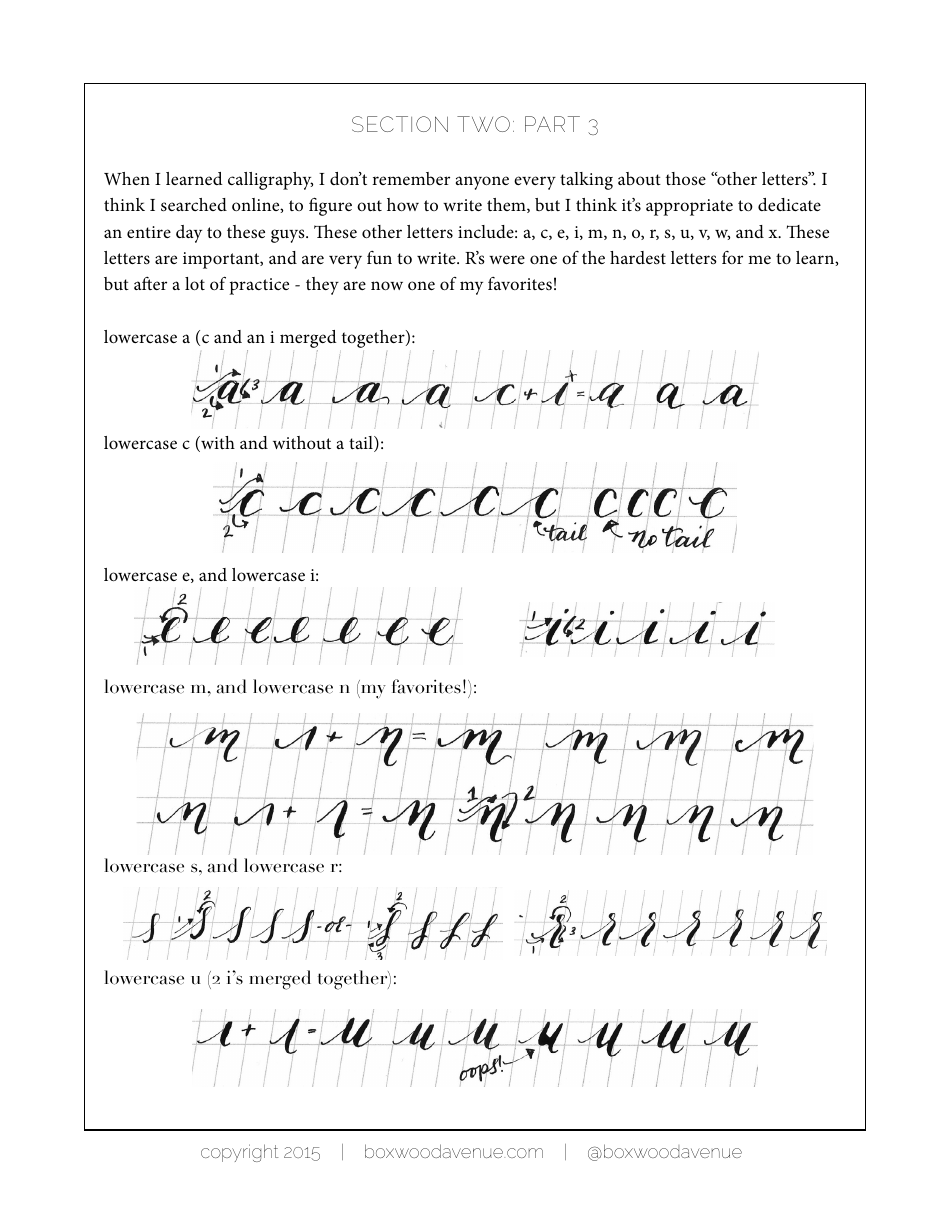 SECTION TWO: PART 3
When I learned calligraphy, I don't remember anyone every talking about those "other letters". I
think I searched online, to figure out how to write them, but I think it's appropriate to dedicate
an entire day to these guys. These other letters include: a, c, e, i, m, n, o, r, s, u, v, w, and x. These
letters are important, and are very fun to write. R's were one of the hardest letters for me to learn,
but after a lot of practice - they are now one of my favorites!
lowercase a (c and an i merged together):
1 2 a 3 a a a c + i = a a a
lowercase c (with and without a tail):
1 2 c c c c c c c c c c
tail no tail
lowercase e, and lowercase i:
1 2 e e e e e e e 1 i 2 i i i i
lowercase m, and lowercase n (my favorites!):
m ı + n = m m m m
n ı + ı = n 1 n 2 n n n n
lowercase s, and lowercase r:
s 1 2 s s s s -or- 1 2 3 s s s s 1 2 3 r r r r r r r
lowercase u (2 i's merged together):
ı + ı = u u u u u u u
oops!
copyright 2015 | boxwoodavenue.com | @boxwoodavenue